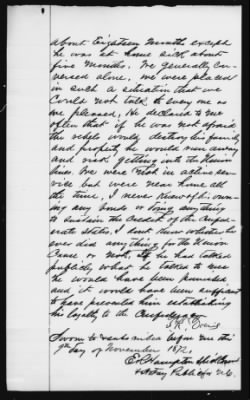 about Eighteen Months except
he was at home sick about
five Months. We generally con-
versed alone. we were placed
in such a situation that we
could not talk to every one as
we pleased. He declared to me
often that if he was not afraid
the rebels would destroy his family
and property he would run away
and risk getting into the Union
lines. We were not in active ser-
vice but were near home all
the time. I never knew of his own-
ing any bonds or doing any thing
to sustain the Credit of the Confed-
erate States. I dont know whether he
ever did anything for the Union
Cause or not. If he had talked
publicly what he talked to me
he would have been punished
and it would have been sufficient
to have prevented him establishing
his loyalty to the Confederacy
Sworn to & subscribed before me this
9th Day of November 1872.
E. Hampton
& Notary Public N.C.